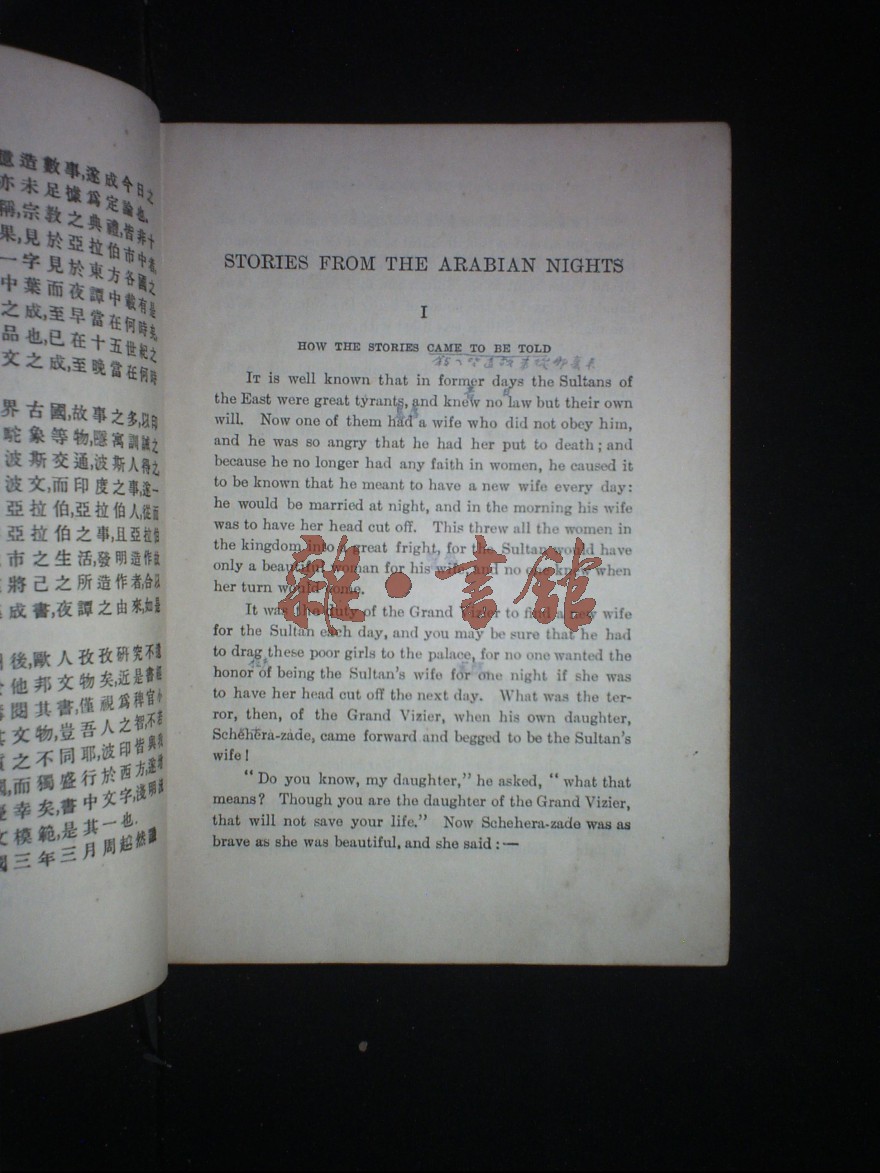 臆造數事,遂成今日之
亦未足據爲定論也.
稱,宗教之典禮,皆非十
果,見於亞拉伯市中者,
一字見於東方各國之
中葉而夜譚中載有是
之成,至早當在何時矣.
品也,已在十五世紀之
文之成,至晚當在何時
界古國,故事之多,以印
駝象等物,隱寓訓誡之
波斯交通,波斯人得之
波文,而印度之事,遂一
亞拉伯,亞拉伯人,從而
亞拉伯之事,且亞拉伯
市之生活,發明造作故
將己之所造作者,合以
成書,夜譚之由來,如是
後,歐人孜孜研究不遺
他邦文物矣,近是書經
閱其書,僅視爲稗官小
其文物,豈吾人之智,不若
之不同耶,波印皆與我
而獨盛行於西方,遂增
幸矣,書中文字,淺明流
文模範,是其一也.
國三年三月周越然識
STORIES FROM THE ARABIAN NIGHTS
I
HOW THE STORIES CAME TO BE TOLD
IT is well known that in former days the Sultans of
the East were great tyrants, and knew no law but their own
will. Now one of them had a wife who did not obey him,
and he was so angry that he had her put to death; and
because he no longer had any faith in women, he caused it
to be known that he meant to have a new wife every day:
he would be married at night, and in the morning his wife
was to have her head cut off. This threw all the women in
the kingdom into a great fright, for the Sultan would have
only a beautiful woman for his wife, and no one knew when
her turn would come.
It was the duty of the Grand Vizier to find a new wife
for the Sultan each day, and you may be sure that he had
to drag these poor girls to the palace, for no one wanted the
honor of being the Sultan's wife for one night if she was
to have her head cut off the next day. What was the ter-
ror, then, of the Grand Vizier, when his own daughter,
Schĕhēra-zade, came forward and begged to be the Sultan's
wife!
"Do you know, my daughter," he asked, "what that
means? Though you are the daughter of the Grand Vizier,
that will not save your life." Now Schehera-zade was as
brave as she was beautiful, and she said:—
雜·書館